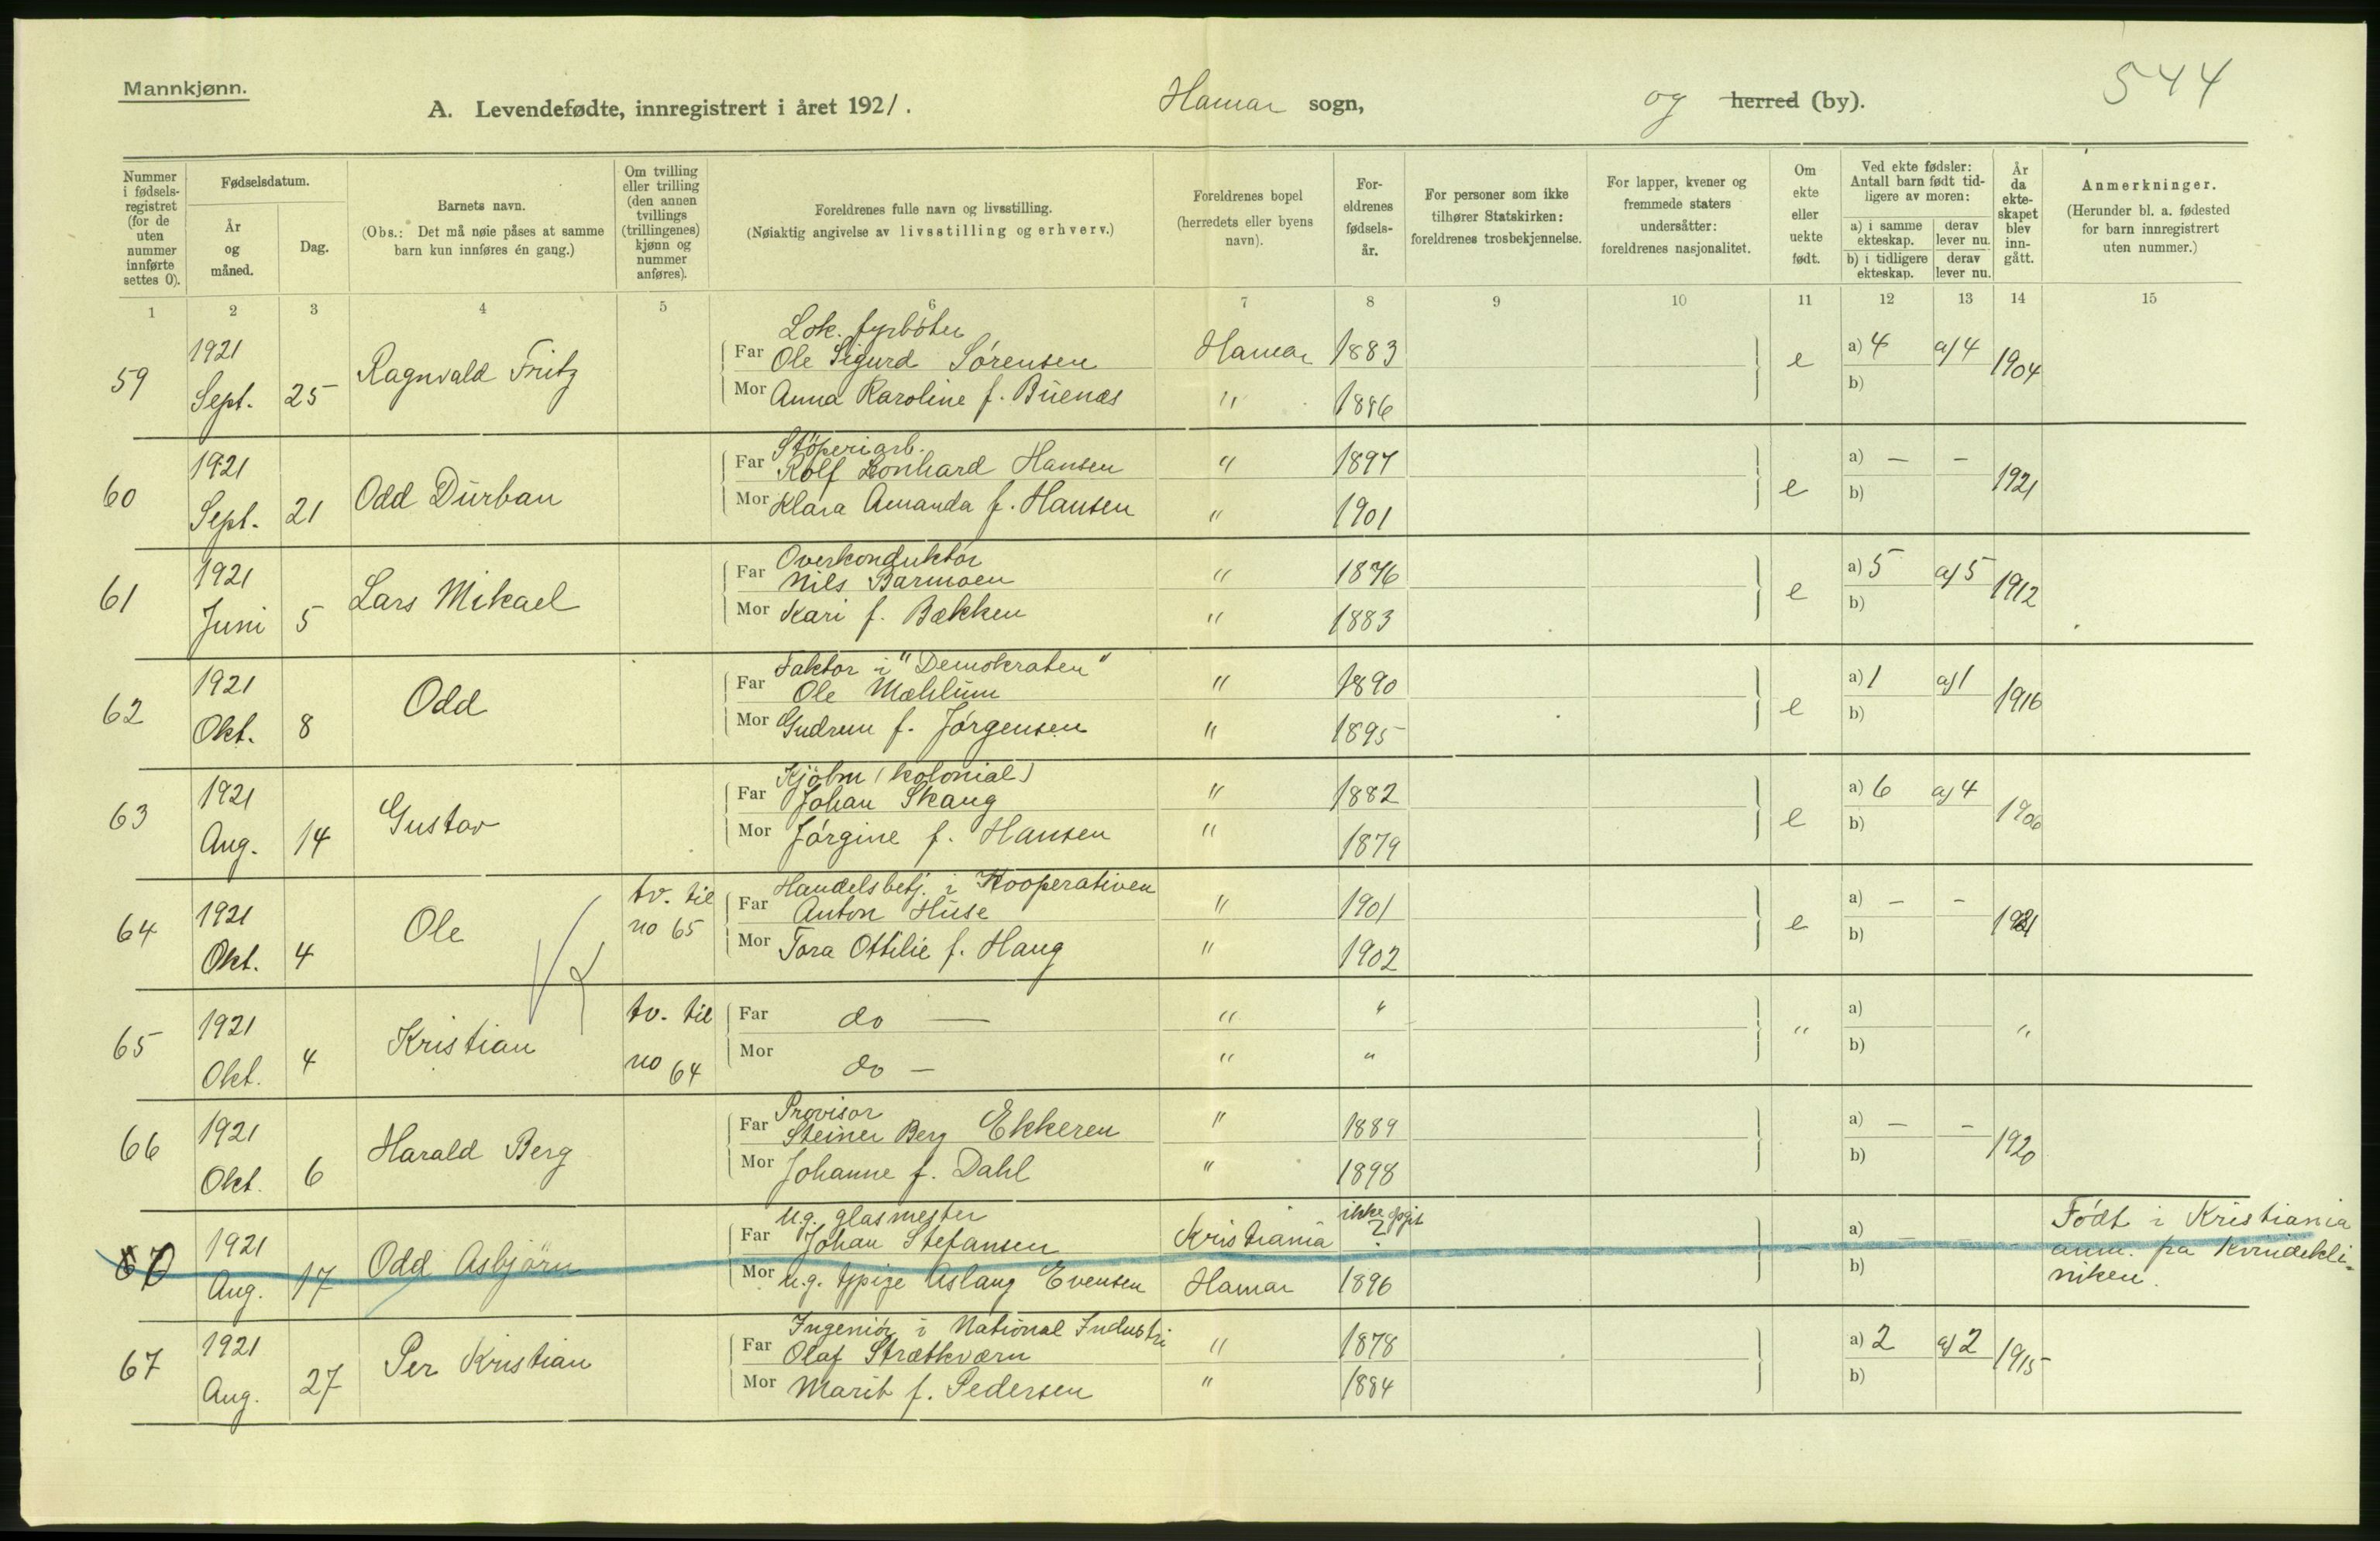 Mannkjønn.
A. Levendefødte, innregistrert i året 1921.
Hamar sogn,
og herred (by).
544
Nummer i fødsels-registret (for de uten nummer innførte settes 0).
Fødselsdatum.
År og måned.
Dag.
Barnets navn.
(Obs.: Det må nøie påses at samme barn kun innføres én gang.)
Om tvilling eller trilling (den annen tvillings (trillingenes) kjønn og nummer anføres).
Foreldrenes fulle navn og livsstilling.
(Nøiaktig angivelse av livsstilling og erhverv.)
Foreldrenes bopel (herredets eller byens navn).
For-eldrenes fødsels-år.
For personer som ikke tilhører Statskirken: foreldrenes trosbekjennelse.
For lapper, kvener og fremmede staters undersåtter: foreldrenes nasjonalitet.
Om ekte eller uekte født.
Ved ekte fødsler: Antall barn født tid-ligere av moren:
a) i samme ekteskap.
derav lever nu.
b) i tidligere ekteskap.
derav lever nu.
År da ekte-skapet blev inn-gått.
Anmerkninger.
(Herunder bl. a. fødested for barn innregistrert uten nummer.)
1 2 3 4 5 6 7 8 9 10 11 12 13 14 15
Lok. fyrbøter
59 1921 Ragnvald Fritz Far Ole Sigurd Sørensen Hamar 1883 e a) 4 a) 4 1904
Sept. 25 Mor Anna Karoline f. Buenæs " 1886 b)
Støperiarb.
60 1921 Odd Durban Far Rolf Leonhard Hansen " 1897 e a) – – 1921
Sept. 21 Mor Klara Amanda f. Hansen " 1901 b)
Overkonduktør
61 1921 Lars Mikael Far Nils Barmoen " 1876 e a) 5 a) 5 1912
Juni 5 Mor Kari f. Bækken " 1883 b)
Faktor i "Demokraten"
62 1921 Odd Far Ole Mæhlum " 1890 e a) 1 a) 1 1916
Okt. 8 Mor Gudrun f. Jørgensen " 1895 b)
Kjøbm (kolonial)
63 1921 Gustav Far Johan Skaug " 1882 e a) 6 a) 4 1906
Aug. 14 Mor Jørgine f. Hansen " 1879 b)
Handelsbetj. i Kooperativen
64 1921 Ole tv. til no 65 Far Anton Huse " 1901 e a) – – 1921
Okt. 4 Mor Tora Ottilie f. Haug " 1902 b)
65 1921 Kristian tv. til no 64 Far do — " " " a) "
Okt. 4 Mor do – " " b)
Provisor
66 1921 Harald Berg Far Steiner Berg Ekkeren " 1889 a) – – 1920
Okt. 6 Mor Johanne f. Dahl " 1898 b)
u.g. glasmester
0 1921 Odd Asbjørn Far Johan Stefansen Kristiania ikke opgit ? – a) – – –
Aug. 17 Mor u.g. Aslaug Evensen Hamar 1896 b)
Født i Kristiania
anm. på Kvindekli-
niken.
Ingeniør i National Industri
67 1921 Per Kristian Far Olaf Strætkværn " 1878 a) 2 a) 2 1915
Aug. 27 Mor Marit f. Pedersen " 1884 b)